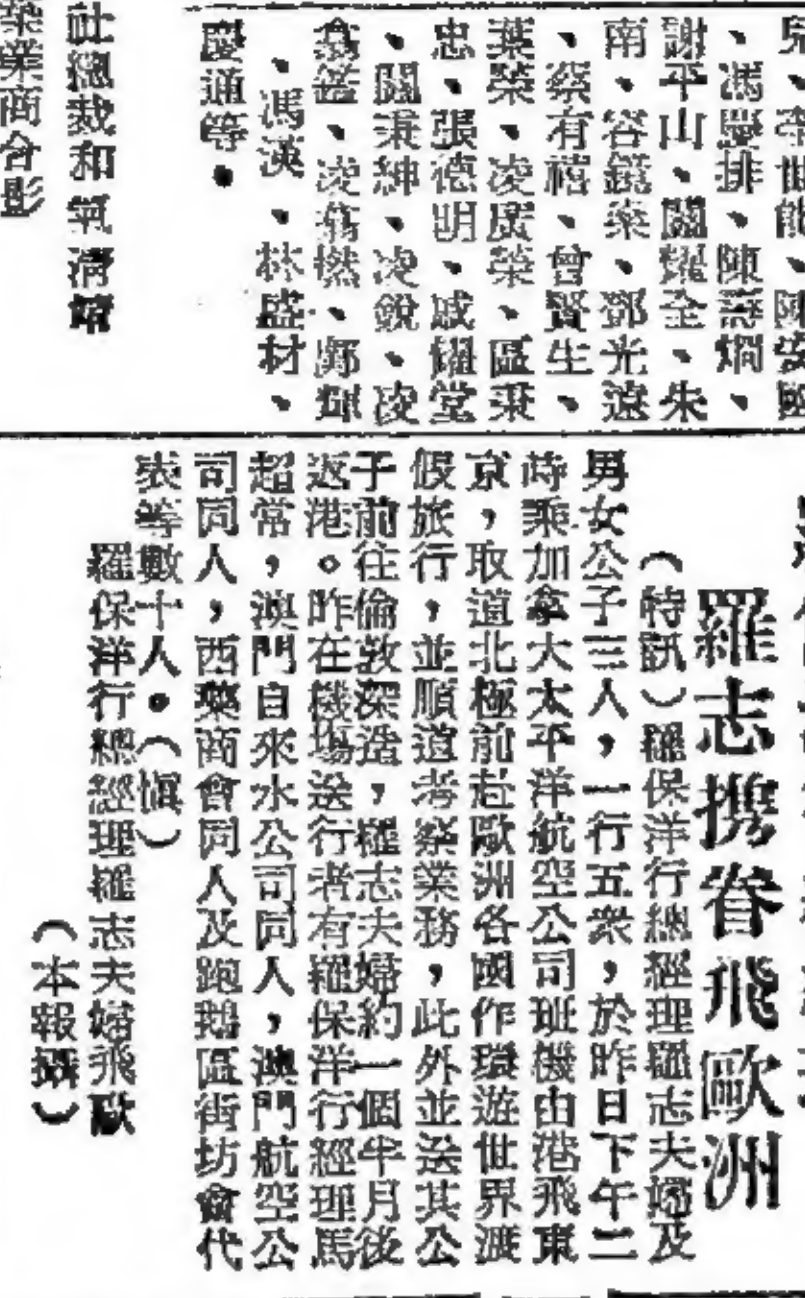 、馮學排、陳壽炯、
謝平山、關耀全、朱
南、容鏡榮、鄧光遠
、蔡有禧、曾賢生、
葉榮、凌庶榮、區秉
忠、張德明、戚耀堂
、關秉紳、凌銳、凌
、馮漢、林盛材、
慶通等。
社總裁和氣清靖
藥業商合影
羅志携眷飛歐洲
(特訊)羅保洋行總經理羅志夫婦及
男女公子三人,一行五衆,於昨日下午二
時乘加拿大太平洋航空公司班機由港飛東
京,取道北極前赴歐洲各國作環遊世界渡
假旅行,並順道考察業務,此外並送其公
子前往倫敦深造,羅志夫婦約一個半月後
返港。昨在機塲送行者有羅保洋行經理馬
超常,澳門自來水公司同人,澳門航空公
司同人,西藥商會同人及跑鵝區街坊會代
表等數十人。(愼)
羅保洋行總經理羅志夫婦飛歐
(本報攝)